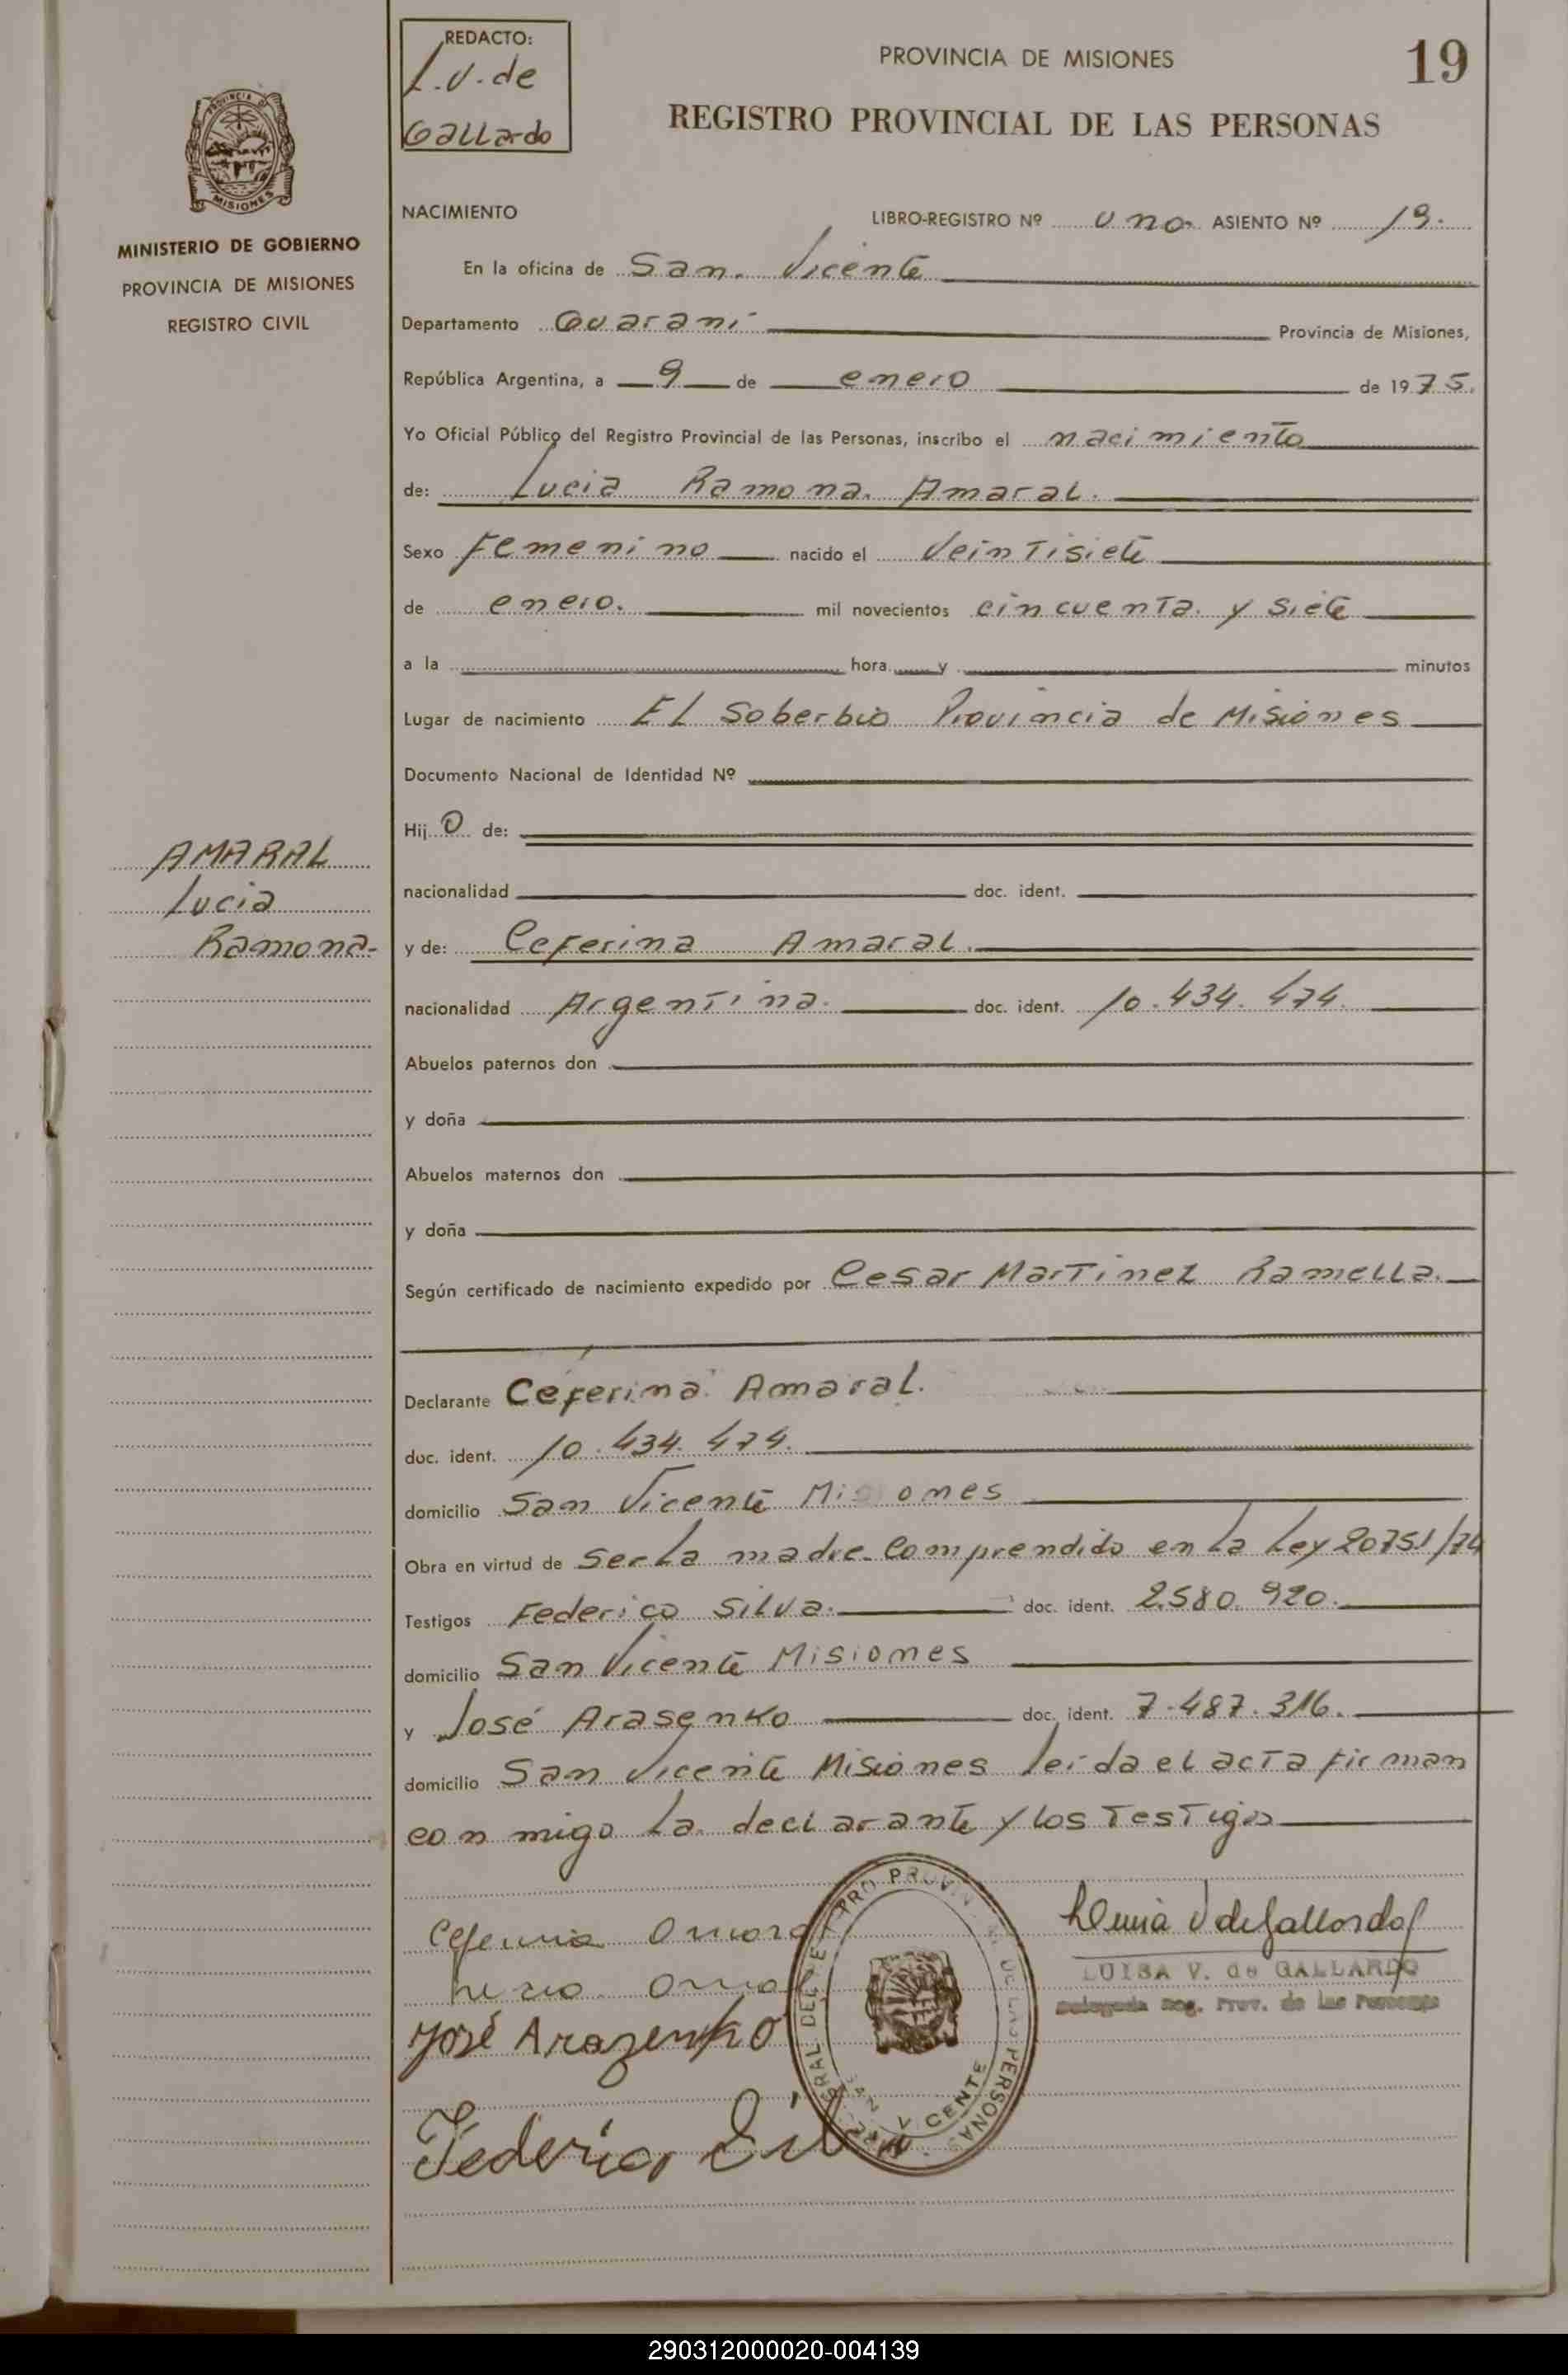 REDACTO:
L.V. de
Gallardo
PROVINCIA DE MISIONES
19
REGISTRO PROVINCIAL DE LAS PERSONAS
PROVINCIA D MISIONES
MINISTERIO DE GOBIERNO
PROVINCIA DE MISIONES
REGISTRO CIVIL
NACIMIENTO LIBRO-REGISTRO Nº uno ASIENTO Nº 19.
En la oficina de San Vicente
Departamento Guaraní Provincia de Misiones,
República Argentina, a 9 de enero de 1975.
Yo Oficial Público del Registro Provincial de las Personas, inscribo el nacimiento
de: Lucia Ramona Amaral.
Sexo Femenino nacido el Veintisiete
de enero. mil novecientos cincuenta y siete
a la hora y minutos
Lugar de nacimiento El Soberbio Provincia de Misiones
Documento Nacional de Identidad Nº
Hijo de:
nacionalidad doc. ident.
AMARAL
Lucia
Ramona-
y de: Ceferina Amaral.
nacionalidad Argentina. doc. ident. 10.434.474.
Abuelos paternos don
y doña
Abuelos maternos don
y doña
Según certificado de nacimiento expedido por Cesar Martinez Ramella.
Declarante Ceferina Amaral.
doc. ident. 10.434.474.
domicilio San Vicente Misiones
Obra en virtud de Ser La madre Comprendido en La Ley 20751/74
Testigos Federico Silva. doc. ident. 2.580.920.
domicilio San Vicente Misiones
y José Arasenko doc. ident. 7.487.316.
domicilio San Vicente Misiones leída el acta firman
conmigo La declarante y los Testigos
José Arazenko
Federico Silva
LUISA V. de GALLARDO
Delegada Reg. Prov. de las Personas
VICENTE
290312000020-004139